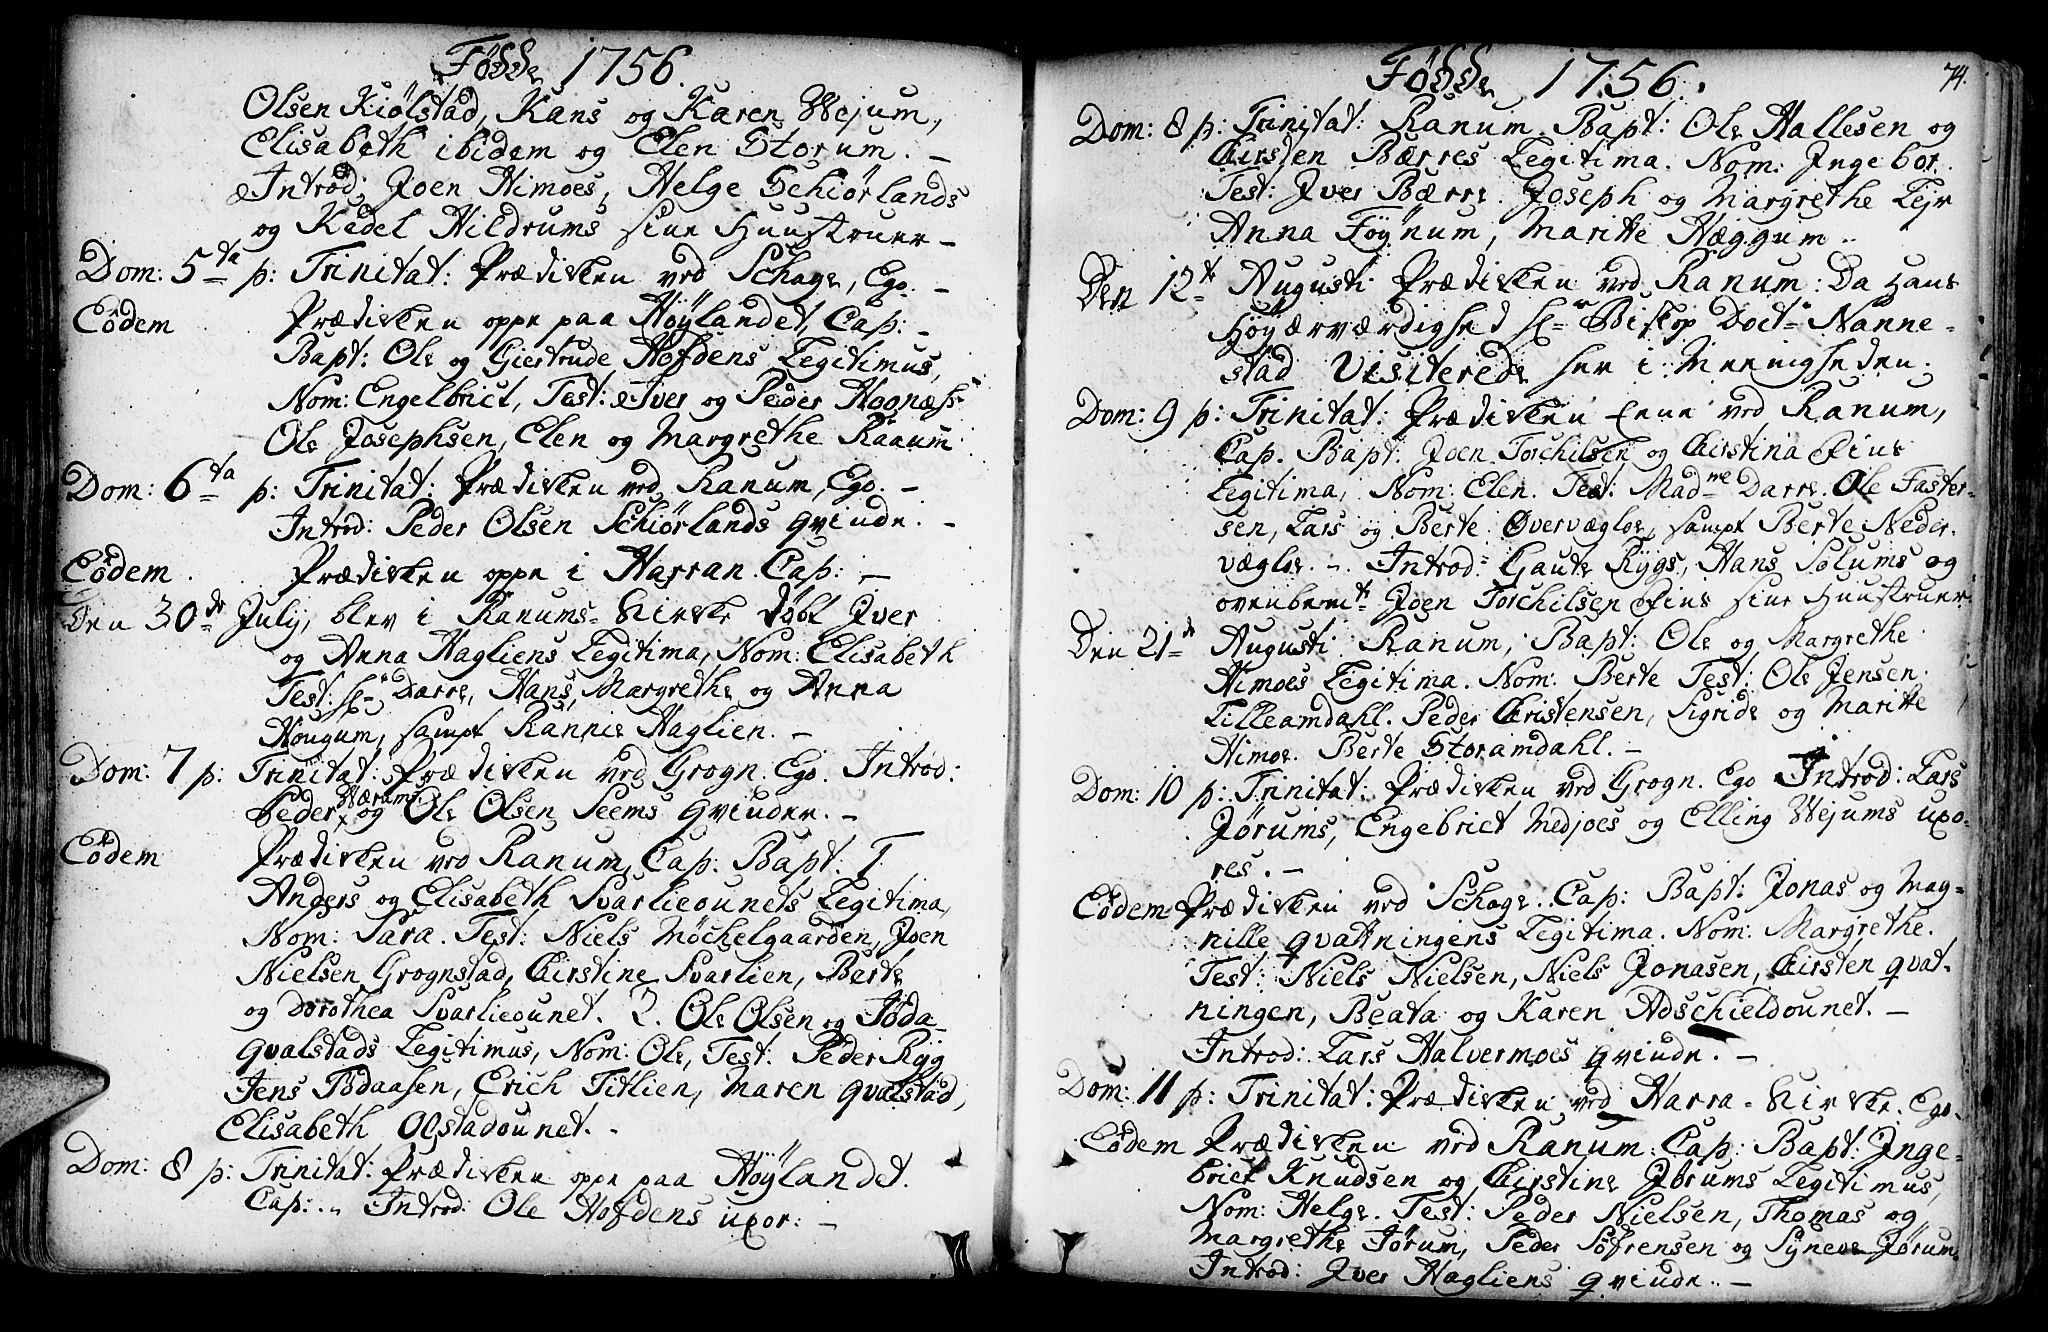 Fødde 1756.
Olsen Kiølstad, Hans og Karen Wejum,
Elisabeth ibidem og Elen Storum. –
Introd: Joen Himoes, Helge Schiørlands
og Kedel Hildrums sine Huustruer –
Dom: 5ta p: Trinitat: Prædicken ved Schage, Ego. –
Eodem Prædicken oppe paa Höÿlandet, Cap: –
Bapt: Ole og Giertrude Hofdens Legitimus,
Nom: Engelbrict, Test: Iver og Peder
Ole Josephsen, Elen og Margrethe Ranum
Dom: 6ta p: Trinitat: Prædicken ved Ranum, Ego. –
Introd: Peder Olsen Schiørlands Qvinde. –
Eodem. Prædicken oppe i Harran. Cap: –
Den 30de Julÿ, blev i Ranums-Kircke døbt Iver
og Anna Hagliens Legitima, Nom: Elisabeth
Test: Hr Darre, Hans, Margrethe og Anna
Hougum, sampt Rannie Haglien. –
Dom: 7 p: Trinitat: Prædicken ved Grogn. Ego. Introd:
Peder Wærums og Ole Olsen Seems Qvinder. –
Eodem Prædicken ved Ranum, Cap: Bapt: 1.
Anders og Elisabeth Svarlieounets Legitima,
Nom: Sara. Test: Niels Möchelgaarden, Joen
Nielsen Grognstad, Kirstine Svarlien, Berte
og Dorothea Svarlieounet. 2. Ole Olsen og Jöda
Qvalstads Legitimus, Nom: Ole, Test: Peder Rÿg
Jens Todaasen, Erich Titlien, Maren Qvalstad,
Elisabeth Opstadounet. –
Dom: 8 p: Trinitat: Prædicken oppe paa Höÿlandet.
Cap: – Introd: Ole Hofdens uxor: –
Fødde 1756. 74.
Dom: 8 p: Trinitat: Ranum. Bapt: Ole Hallesen og
Kirsten Bærres Legitima. Nom: Ingebor.
Test: Iver Bærre. Joseph og Margrethe Lejr
Anna Föÿnum, Maritte Hæggum –
Den 12te Augusti Prædicken ved Ranum: Da Hans
Höÿærværdighed Hr Biskop Doctr Nanne-
stad Visiterede her i Meenigheden.
Dom: 9 p: Trinitat: Prædicken Eene ved Ranum,
Cap. Bapt: Joen Torchilsen og Kirstina Fins
Legitima, Nom: Elen. Test: Madme Darre. Ole Faster-
sen, Lars og Berte Overvægloe, sampt Berte Neder-
vægloe. –. Introd: Gaute Rÿgs, Hans Solums og
ovenbemte Joen Torchilsen Fins sine Huustruer
Den 21de Augusti Ranum, Bapt: Ole og Margrethe
Himoes Legitima. Nom: Berte Test: Ole Jensen
Lilleamdahl. Peder Christensen, Sigride og Maritte
Himoe. Berte Storamdahl. –
Dom: 10 p: Trinitat: Prædicken ved Grogn. Ego Introd: Lars
Jörums, Engebrict Medjoes og Elling Wejums uxo-
res. –
Eodem Prædicken ved Schage. Cap: Bapt: Jonas og Mag-
nille Qvatningens Legitima. Nom: Margrethe.
Test: Niels Nielsen, Niels Jonasen, Kirsten Qvat-
ningen, Beata og Karen Adschieldounet. –
Introd: Lars Halvermoes Qvinde. –
Dom: 11 p: Trinitat: Prædicken ved Harra-Kircke. Ego.
Eodem Prædicken ved Ranum: Cap: Bapt: Inge-
brict Knudsen og Kirstine Jörums Legitimus,
Nom: Helge. Test: Peder Nielsen, Thomas og
Margrethe Jörum, Peder Söfrensen og Sÿneve Jörum
Introd: Iver Hagliens Qvinde. –